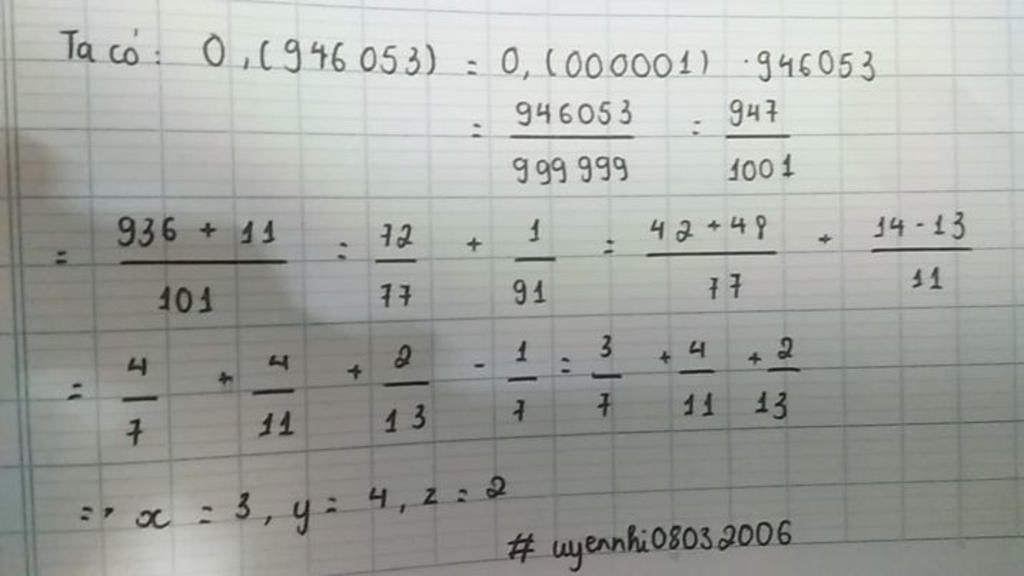 Ta có: 0,(946053) = 0,(000001) . 946053
= 946053/999999 = 947/1001
= 936 + 11/101 = 72/77 + 1/91 = 42 + 49/77 + 14 - 13/11
= 4/7 + 4/11 + 2/13 - 1/7 = 3/7 + 4/11 + 2/13
=> x = 3, y = 4, z = 2
# uyennhi08032006